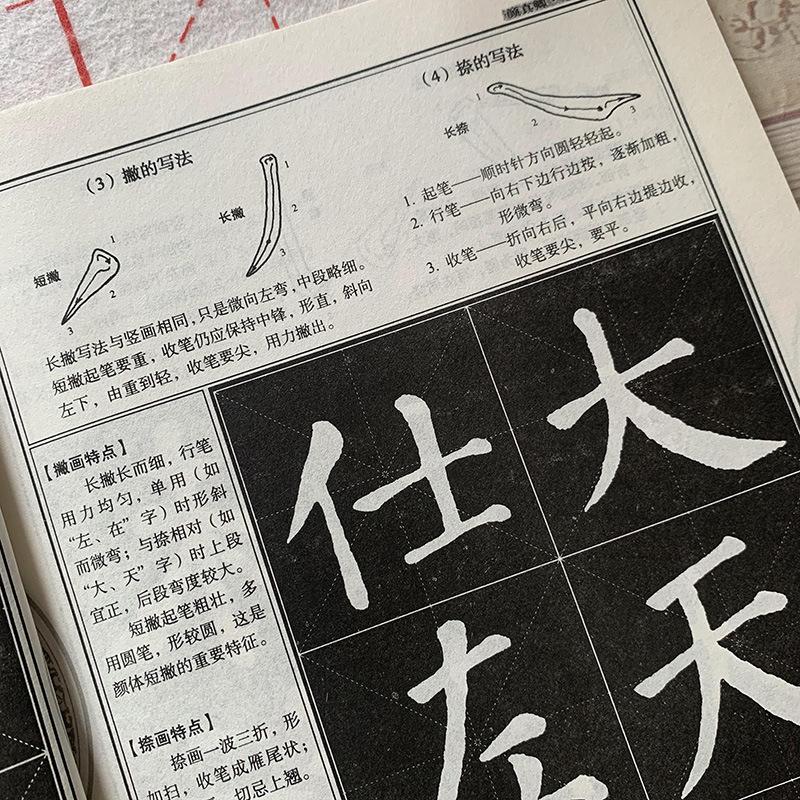 颜真卿
（3）撇的写法
短撇
1
2
3
长撇
1
2
3
长撇写法与竖画相同,只是微向左弯,中段略细。
短撇起笔要重，收笔仍应保持中锋，形直，斜向
左下，由重到轻，收笔要尖，用力撇出。
（4）捺的写法
长捺
1
2
3
1. 起笔——顺时针方向圆轻轻起。
2. 行笔——向右下边行边按，逐渐加粗，
形微弯。
3. 收笔——折向右后，平向右边提边收，
收笔要尖，要平。
【撇画特点】
长撇长而细，行笔
用力均匀，单用（如
“左、在”字）时形斜
而微弯；与捺相对（如
“大、天”字）时上段
宜正，后段弯度较大。
短撇起笔粗壮，多
用圆笔，形较圆，这是
颜体短撇的重要特征。
【捺画特点】
捺画一波三折，形
如扫，收笔成雁尾状；
切忌上翘。
仕
大
左
天